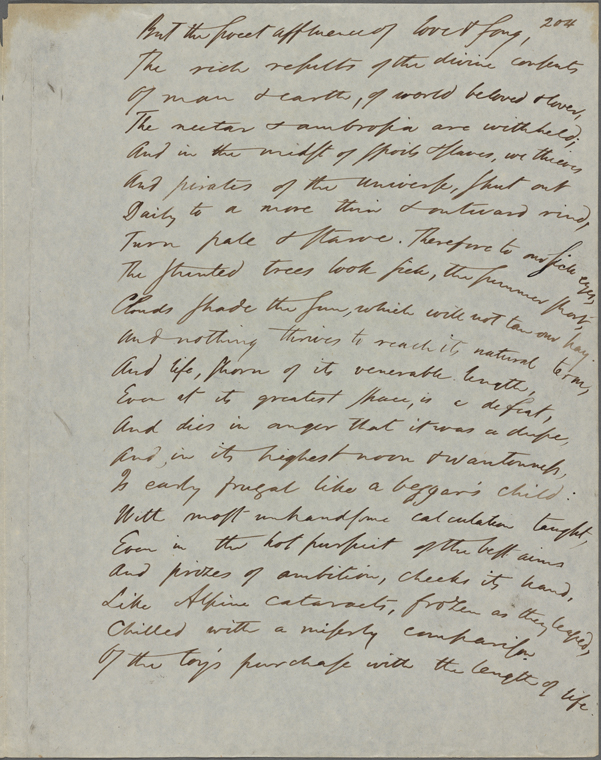 204
But the sweet affluence of love & song,
The rich results of the divine consents
Of man & earth, of world beloved & lover,
The nectar & ambrosia are withheld;
And in the midst of spoils & slaves, we thieves
And pirates of the universe, shut out
Daily to a more thin & outward rind,
Turn pale & starve. Therefore to our sick eyes,
The stunted trees look sick, the summer short,
Clouds shade the sun, which will not tan our hay.
And nothing thrives to reach its natural term,
And life, shorn of its venerable length,
Even at its greatest space, is a defeat,
And dies in anger that it was a dupe,
And, in its highest noon & wantonness,
Is early frugal like a beggar's child:
With most unhandsome calculation taught,
Even in the hot pursuit of the best aims
And prizes of ambition, checks its hand,
Like Alpine cataracts, frozen as they leaped,
Chilled with a miserly comparison
Of the toy's purchase with the length of life.